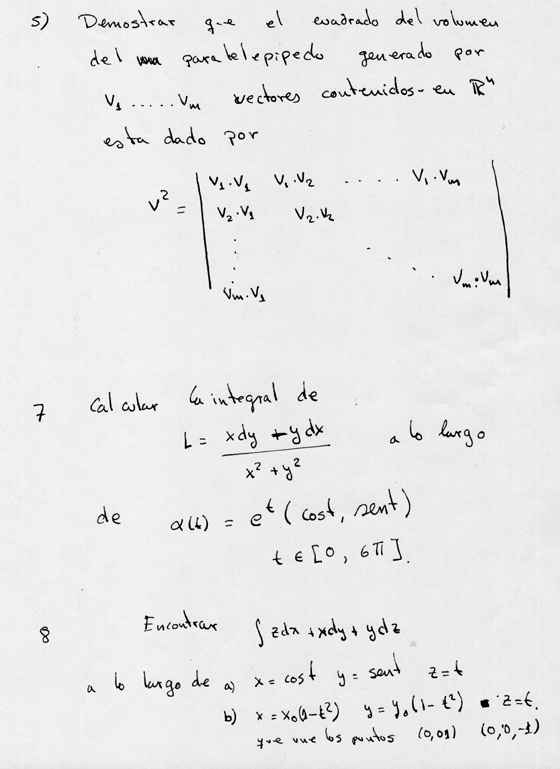 5) Demostrar q-e el cuadrado del volumen
del paralelepipedo generado por
V1 ..... Vm vectores contenidos en ℝⁿ
esta dado por
V² = | V1.V1 V1.V2 .... V1.Vm |
| V2.V1 V2.V2 |
| Vm.V1 Vm.Vm |
7 Calcular la integral de
L = (xdy + ydx) / (x² + y²) a lo largo
de α(t) = e^t (cost, sent)
t ∈ [0, 6π].
8 Encontrar ∫ zdx + xdy + ydz
a lo largo de a) x = cost y = sent z = t
b) x = x0(1-t²) y = y0(1-t²) z = t.
que une los puntos (0,01) (0,0,-1)